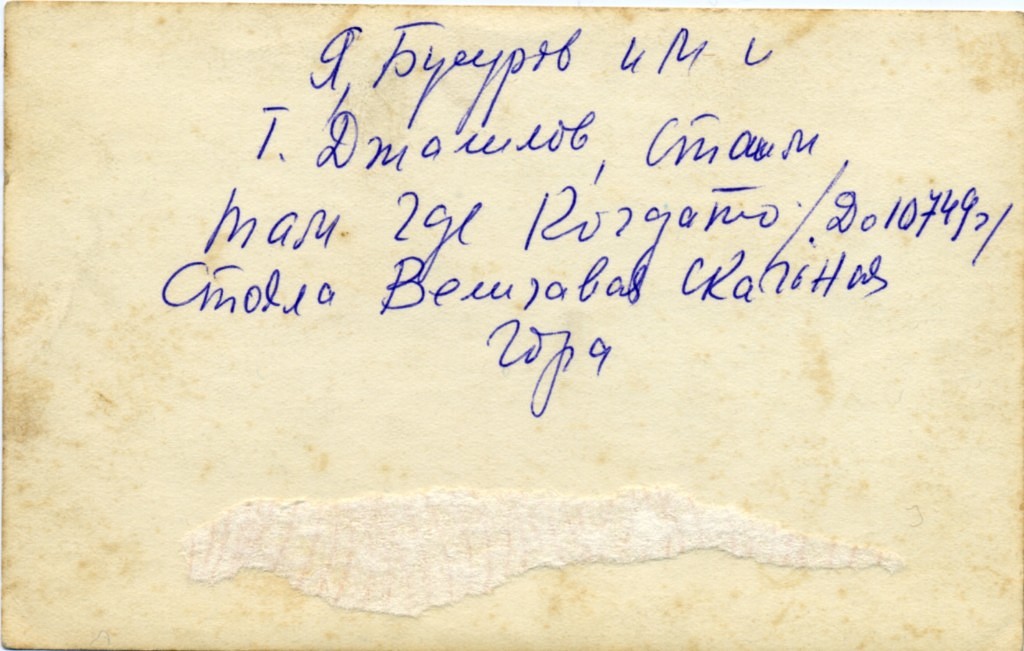 Я, Бугуров и М и
Т. Джалилов, Стоим
там где Когдато /До 10749г/
Стояла Величавая Скальная
Гора